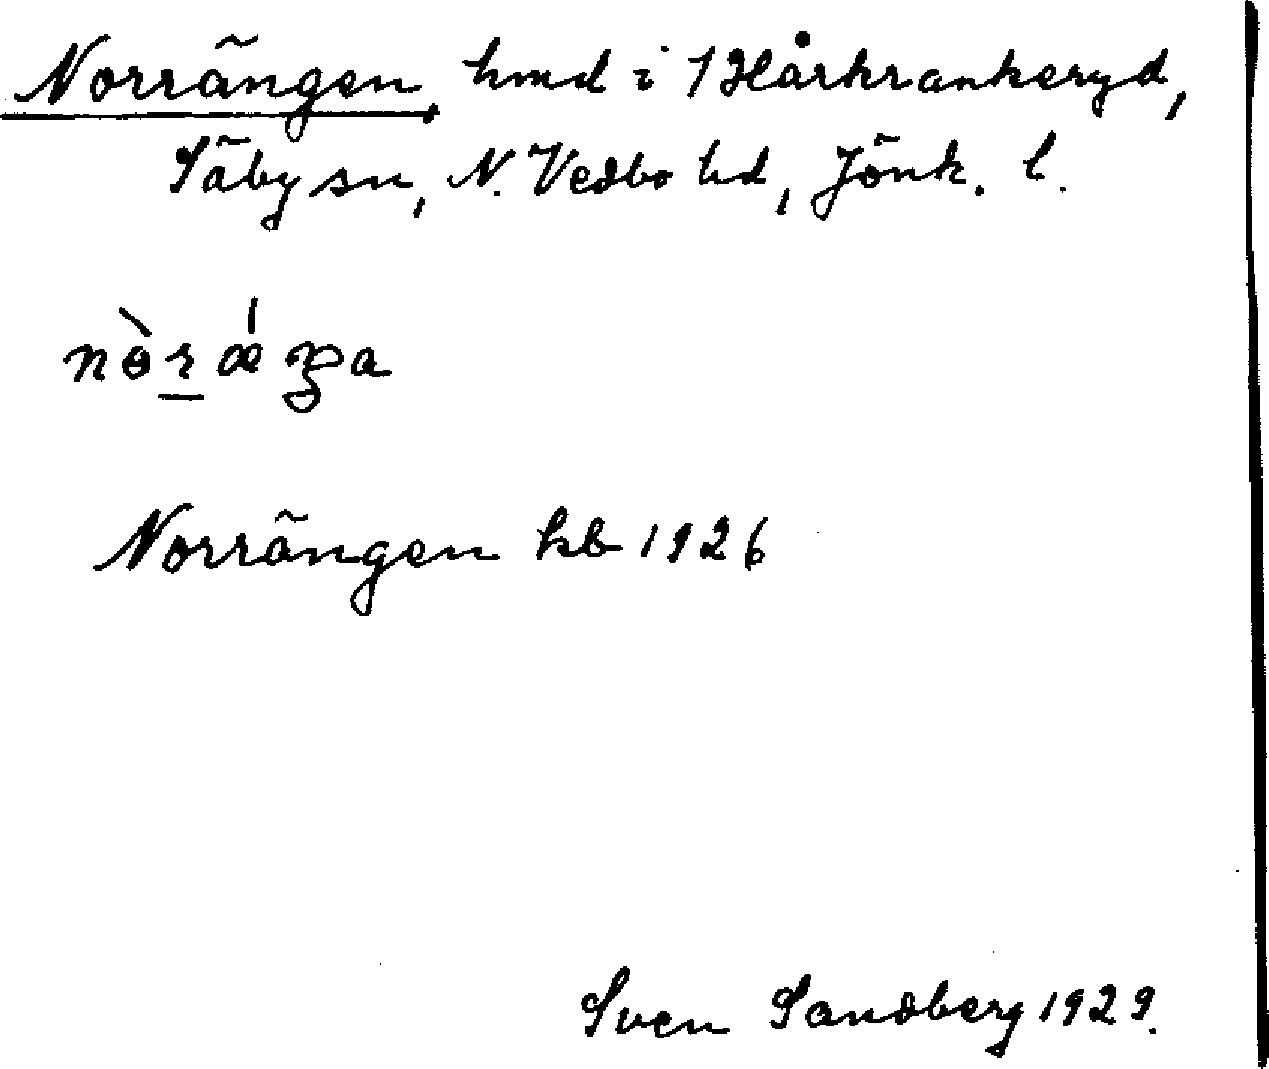 Norrängen, hmd i 1 Hårkrankeryd,
Säby sn, N. Vedbo hd, Jönk. l.
nòræ̍ŋa
Norrängen kb 1926
Sven Sandberg 1929.